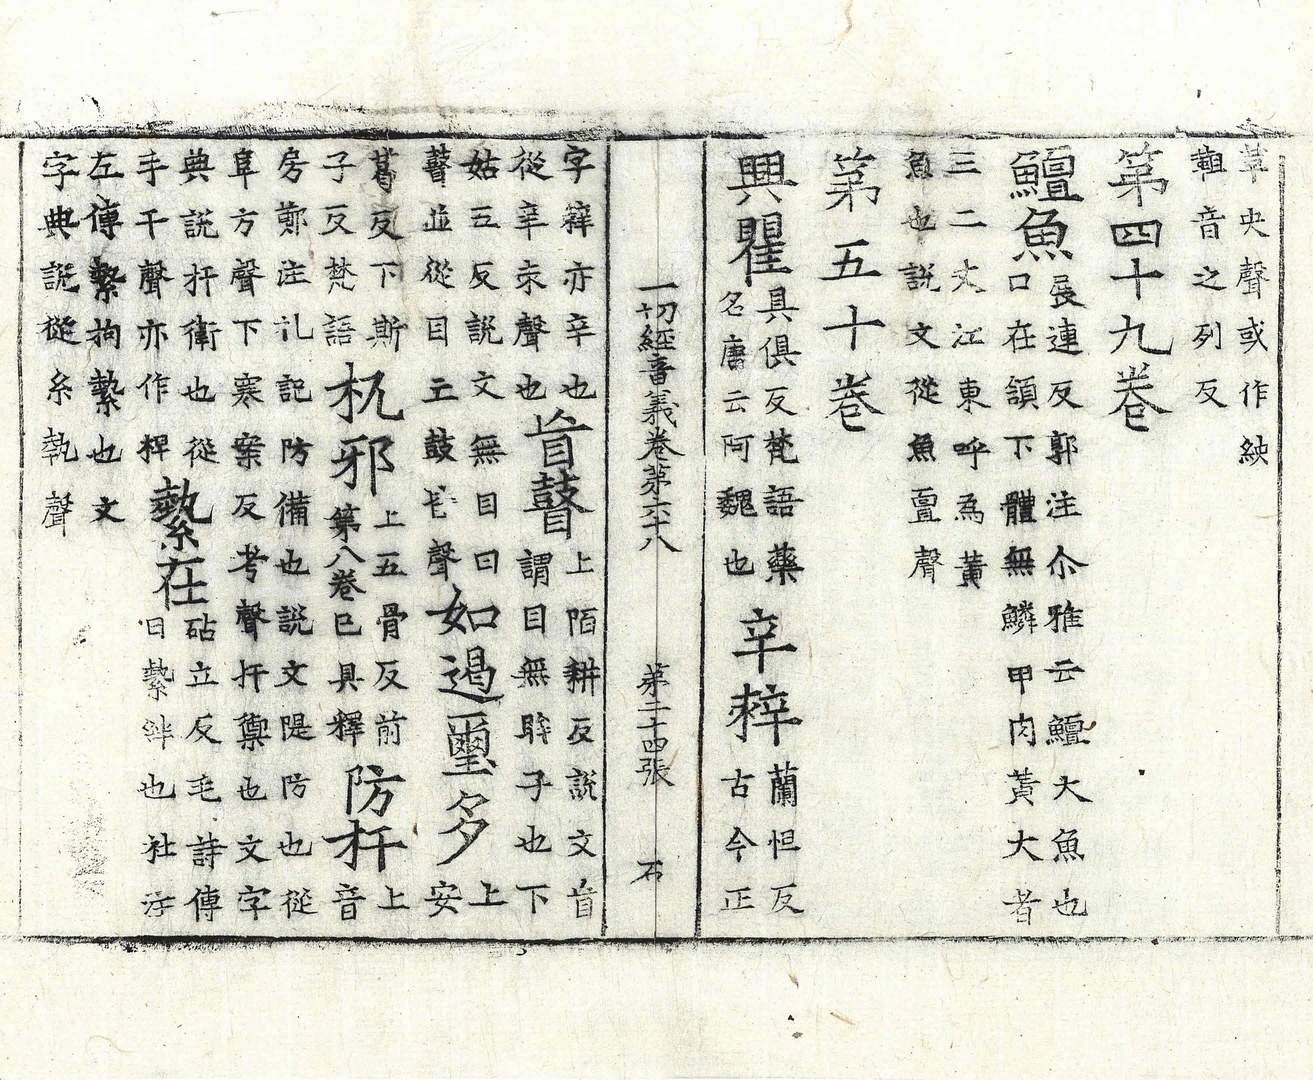 革央聲或作紻
䩠音之列反
第四十九卷
鱣魚 展連反郭注尒雅云鱣大魚也
口在頷下體無鱗甲肉黃大者
三二丈江東呼為黃
魚也說文從魚亶聲
第五十卷
興瞿 具俱反梵語藥
名唐云阿魏也 辛𨐖 蘭怛反
古今正
一切經音義卷第六十八 第二十四張 石
字𨐖亦辛也
從辛末聲也 盲瞽 上陌耕反說文盲
謂目無眸子也下
姑五反說文無目曰
瞽並從目亡鼓皆聲 如遏璽多 上
安
葛反下斯
子反梵語 杌邪 上五骨反前
第八卷已具釋 防扞 上
音
房鄭注礼記防備也說文隄防也從
阜方聲下寒案反考聲扞禦也文字
典說扞衛也從
手干聲亦作捍 縶在 砧立反毛詩傳
曰縶絆也杜注
左傳縶拘縶也文
字典說從糸執聲